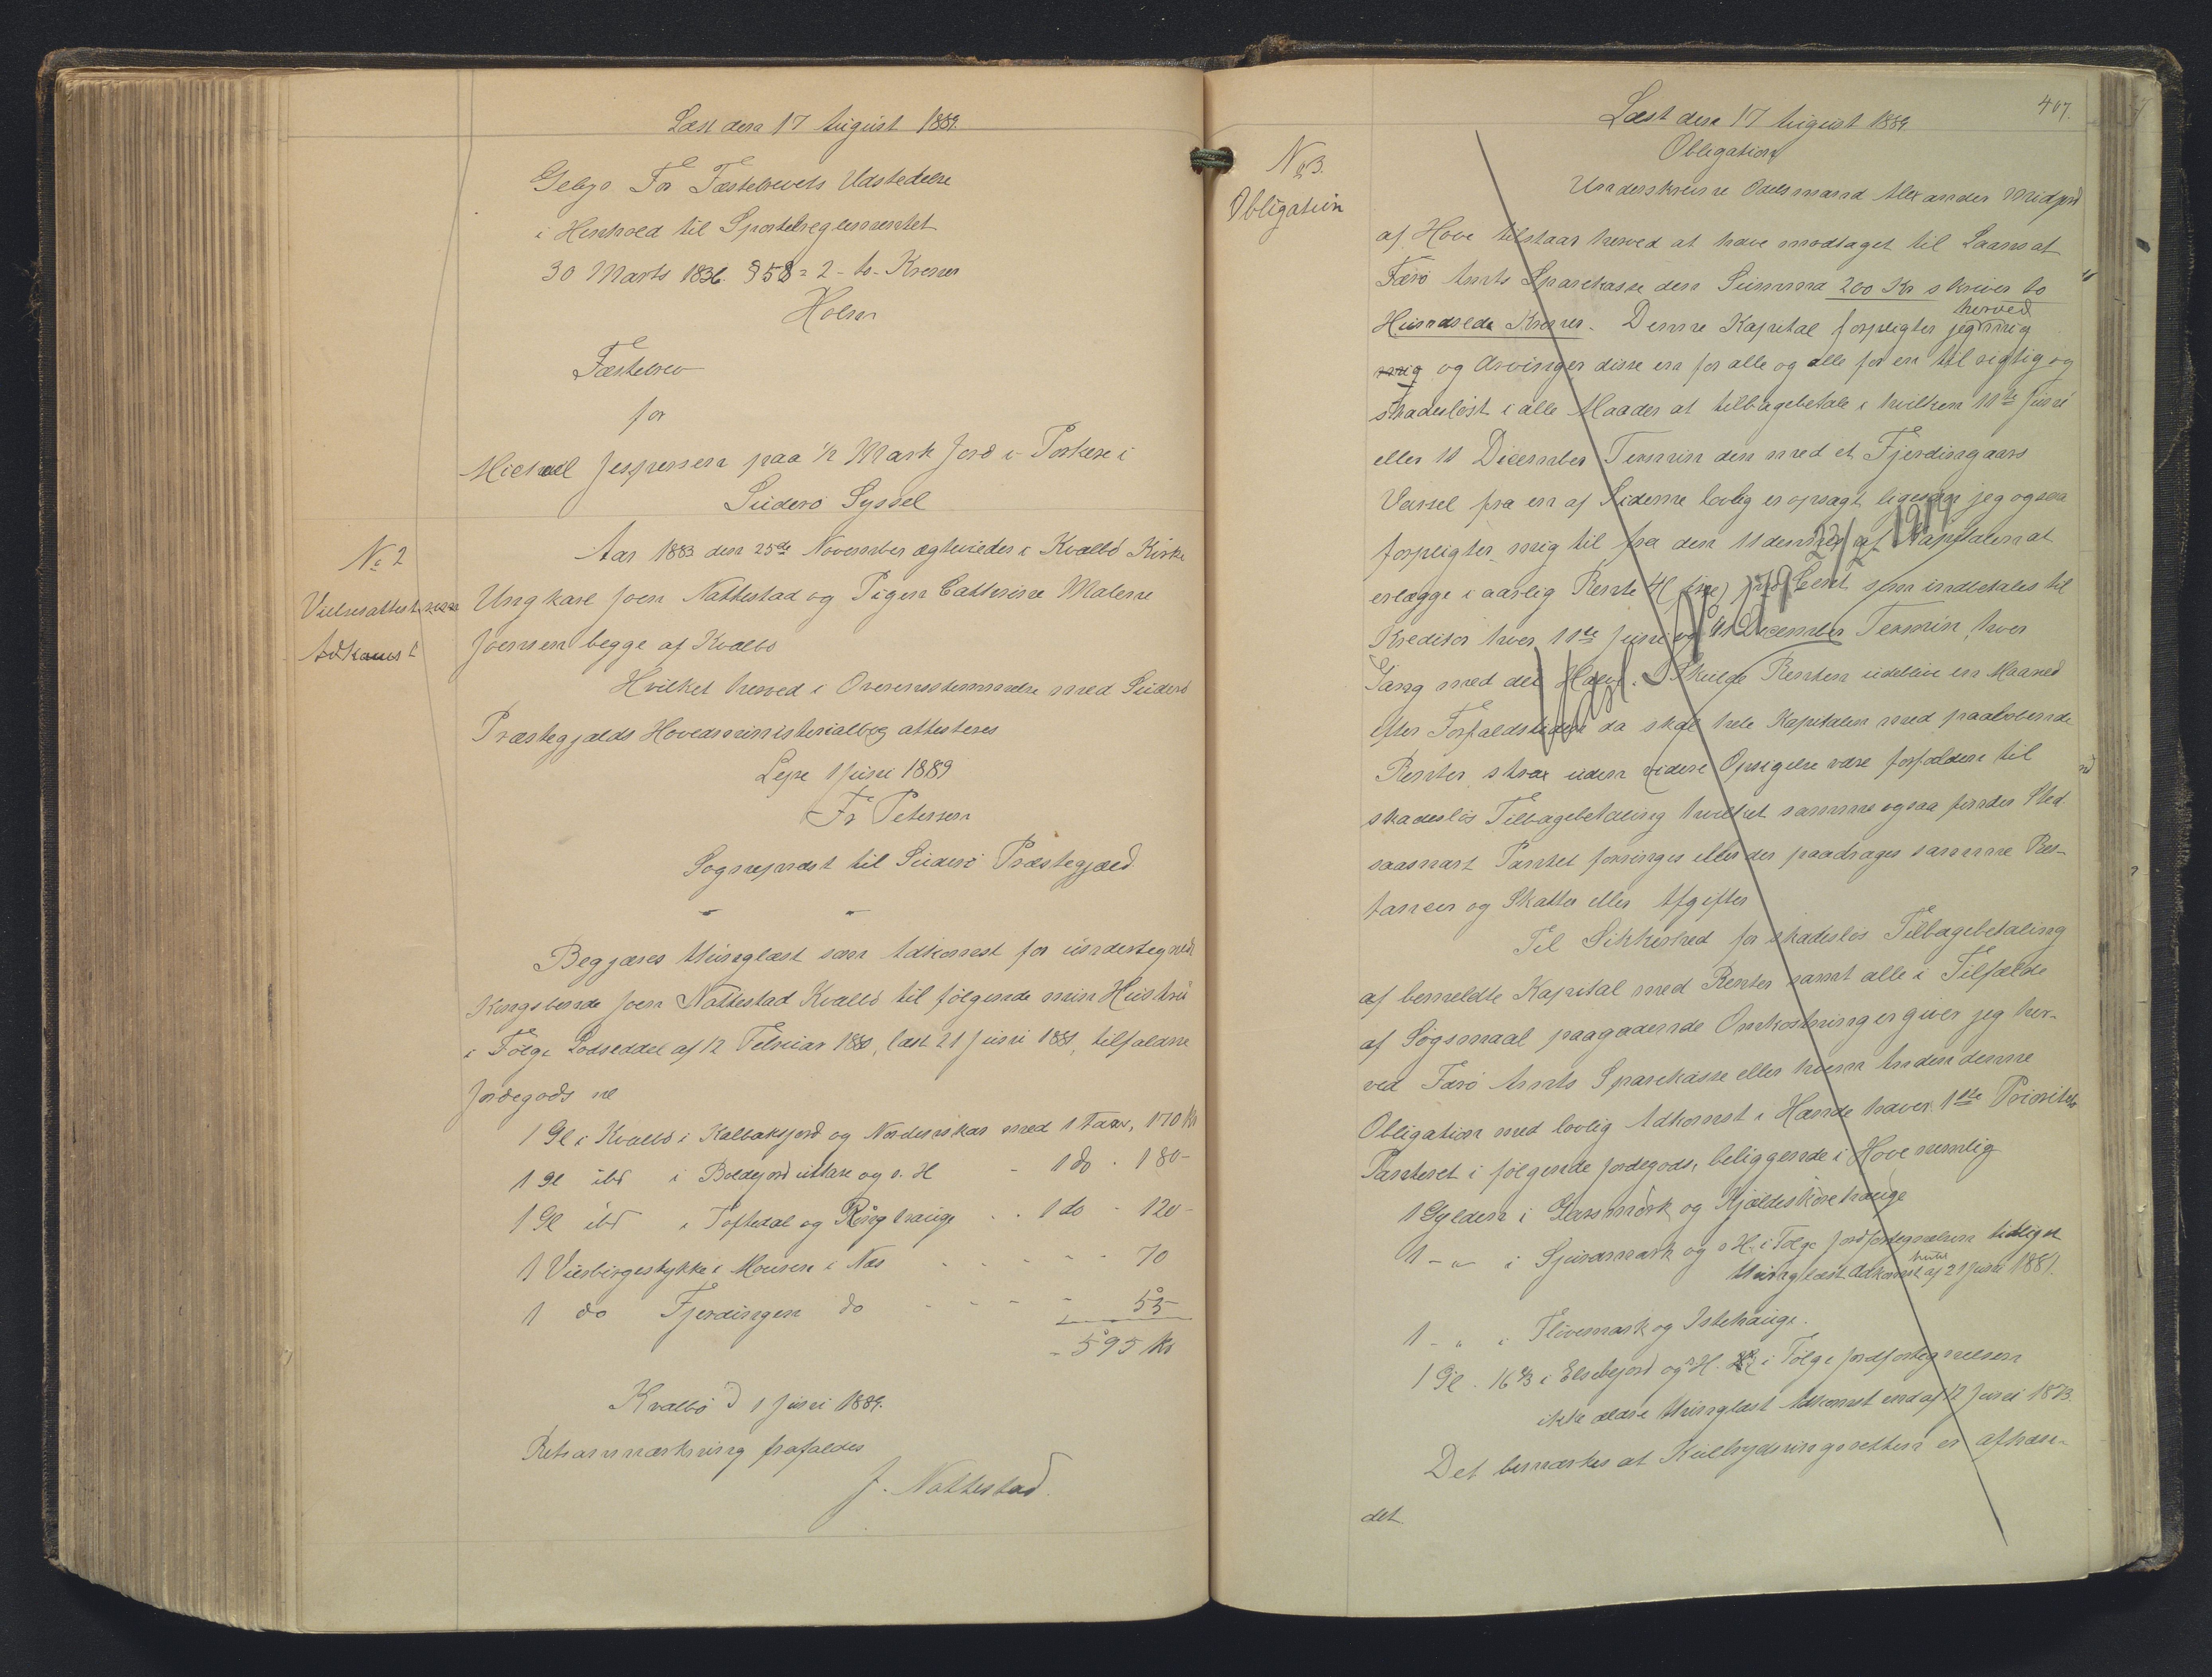 Læst den 17 August 1889.
Gebyr. For Fæstebrevets Udstedelse
i Henhold til Sportelreglementet
30 Marts 1836. § 58 = 2 - to - Kroner
Holm
Fæstebrev
for
Michael Jespersen paa ½ Mark Jord i Porkere i
Suderø Syssel
No 2
Vielsesattest som
Adkomst
Aar 1883 den 25de November ægteviedes i Kvalbø Kirke
Ungkarl Joen Nattestad og Pigen Cathrine Malene
Joensen begge af Kvalbø
Hvilket herved i Overensstemmelse med Suderø
Præstegjælds Hovedministerialbog attesteres
Lejre 1 Juni 1889
Fr Petersen
Sognepræst til Suderø Præstegjæld
Begjæres thinglæst som Adkomst for undertegned
Kongsbonde Joen Nattestad Kvalbø til følgende min Hustru
i Følge Lodseddel af 12 Februar 1880, læst 21 Juni 1881, tilfaldne
Jordegods nl
1 Gl i Kvalbø i Kalbaksjord og Nordinskar med 1 Faar, 170 Kr
1 Gl ibd i Boldejord uttare og s. H - 1 do - 180 -
1 Gl ibd i Toftedal og Røroghauge - - 1 do - 120 -
1 Uierbirgestykke i Mourene i Næs - - - - - 70
1 do Fjerdingen do - - - - 55
- 595 Kr
Kvalbø d 1 Juni 1889.
Retsanmærkning frafaldes
J. Nattestad.
407.
Læst den 17 August 1889.
No 3.
Obligation
Obligation
Underskrevne Odelsmand Alexander Midjord
af Hove tilstaar herved at have modtaget til Laans af
Færø Amts Sparekasse den Summa 200 Kr skriver to
Hundrede Kroner. Denne Kapital forpligter jeg herved mig
mig og Arvinger disse en for alle og alle for en til rigtig og
skadesløst i alle Maader at tilbagebetale i hvilken 11te Juni
eller 11 December Termin den med et Fjerdingaars
Varsel fra en af Siderne lovlig er opsagt ligesom jeg ogsaa
forpligter mig til fra den 11 dennes af Kapitalen at
erlægge i aarlig Rente 4 (fire) pro Cent som indbetales til
Kreditor hver 11te Juni og 11 December Termin, hver
Gang med det Halve. Skulde Renten udeblive en Maaned
efter Forfaldstiden da skal hele Kapitalen med paaløbende
Renter strax uden videre Opsigelse være forfalden til
skadesløs Tilbagebetaling hvilket samme ogsaa finder Sted
saasnart Pantet forringes eller der paadrages samme Res-
tancer og Skatter eller Afgifter
Til Sikkerhed for skadesløs Tilbagebetaling
af bemeldte Kapital med Renter samt alle i Tilfælde
af Søgsmaal paagaaende Omkostninger giver jeg her-
ved Færø Amts Sparekasse eller hvem Anden denne
Obligation med lovlig Adkomst i Hænde haver 1ste Prioritets
Panteret i følgende Jordegods, beliggende i Hove nemlig
1 Gylden i Garsmørk og Kjældeskorehauge
1 - " - i Gjuramørk og s H. i Følge Jordfortegnelsen tidligst
thinglæst Adkomst hertil af 21 Juni 1881.
1 - " i Flivemørk og Istehauge.
1 Gl. 16 ⅔ i Elsebejord og s H. i Følge Jordfortegnelsen
ikke ældre thinglæst Adkomst end af 12 Juni 1873.
Det bemærkes at Kulbrydningsretten er afhæn-
det.